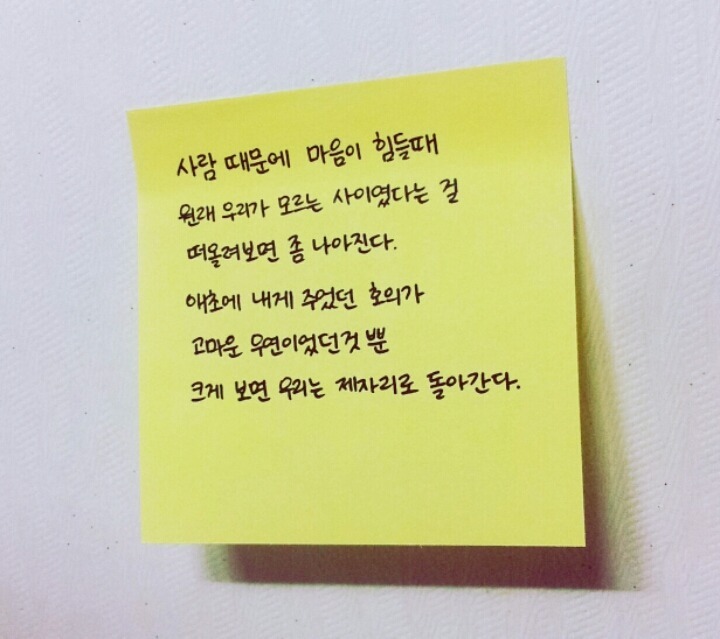 사람 때문에 마음이 힘들때
원래 우리가 모르는 사이였다는 걸
떠올려보면 좀 나아진다.
애초에 내게 주었던 호의가
고마운 우연이었던것 뿐
크게 보면 우리는 제자리로 돌아간다.